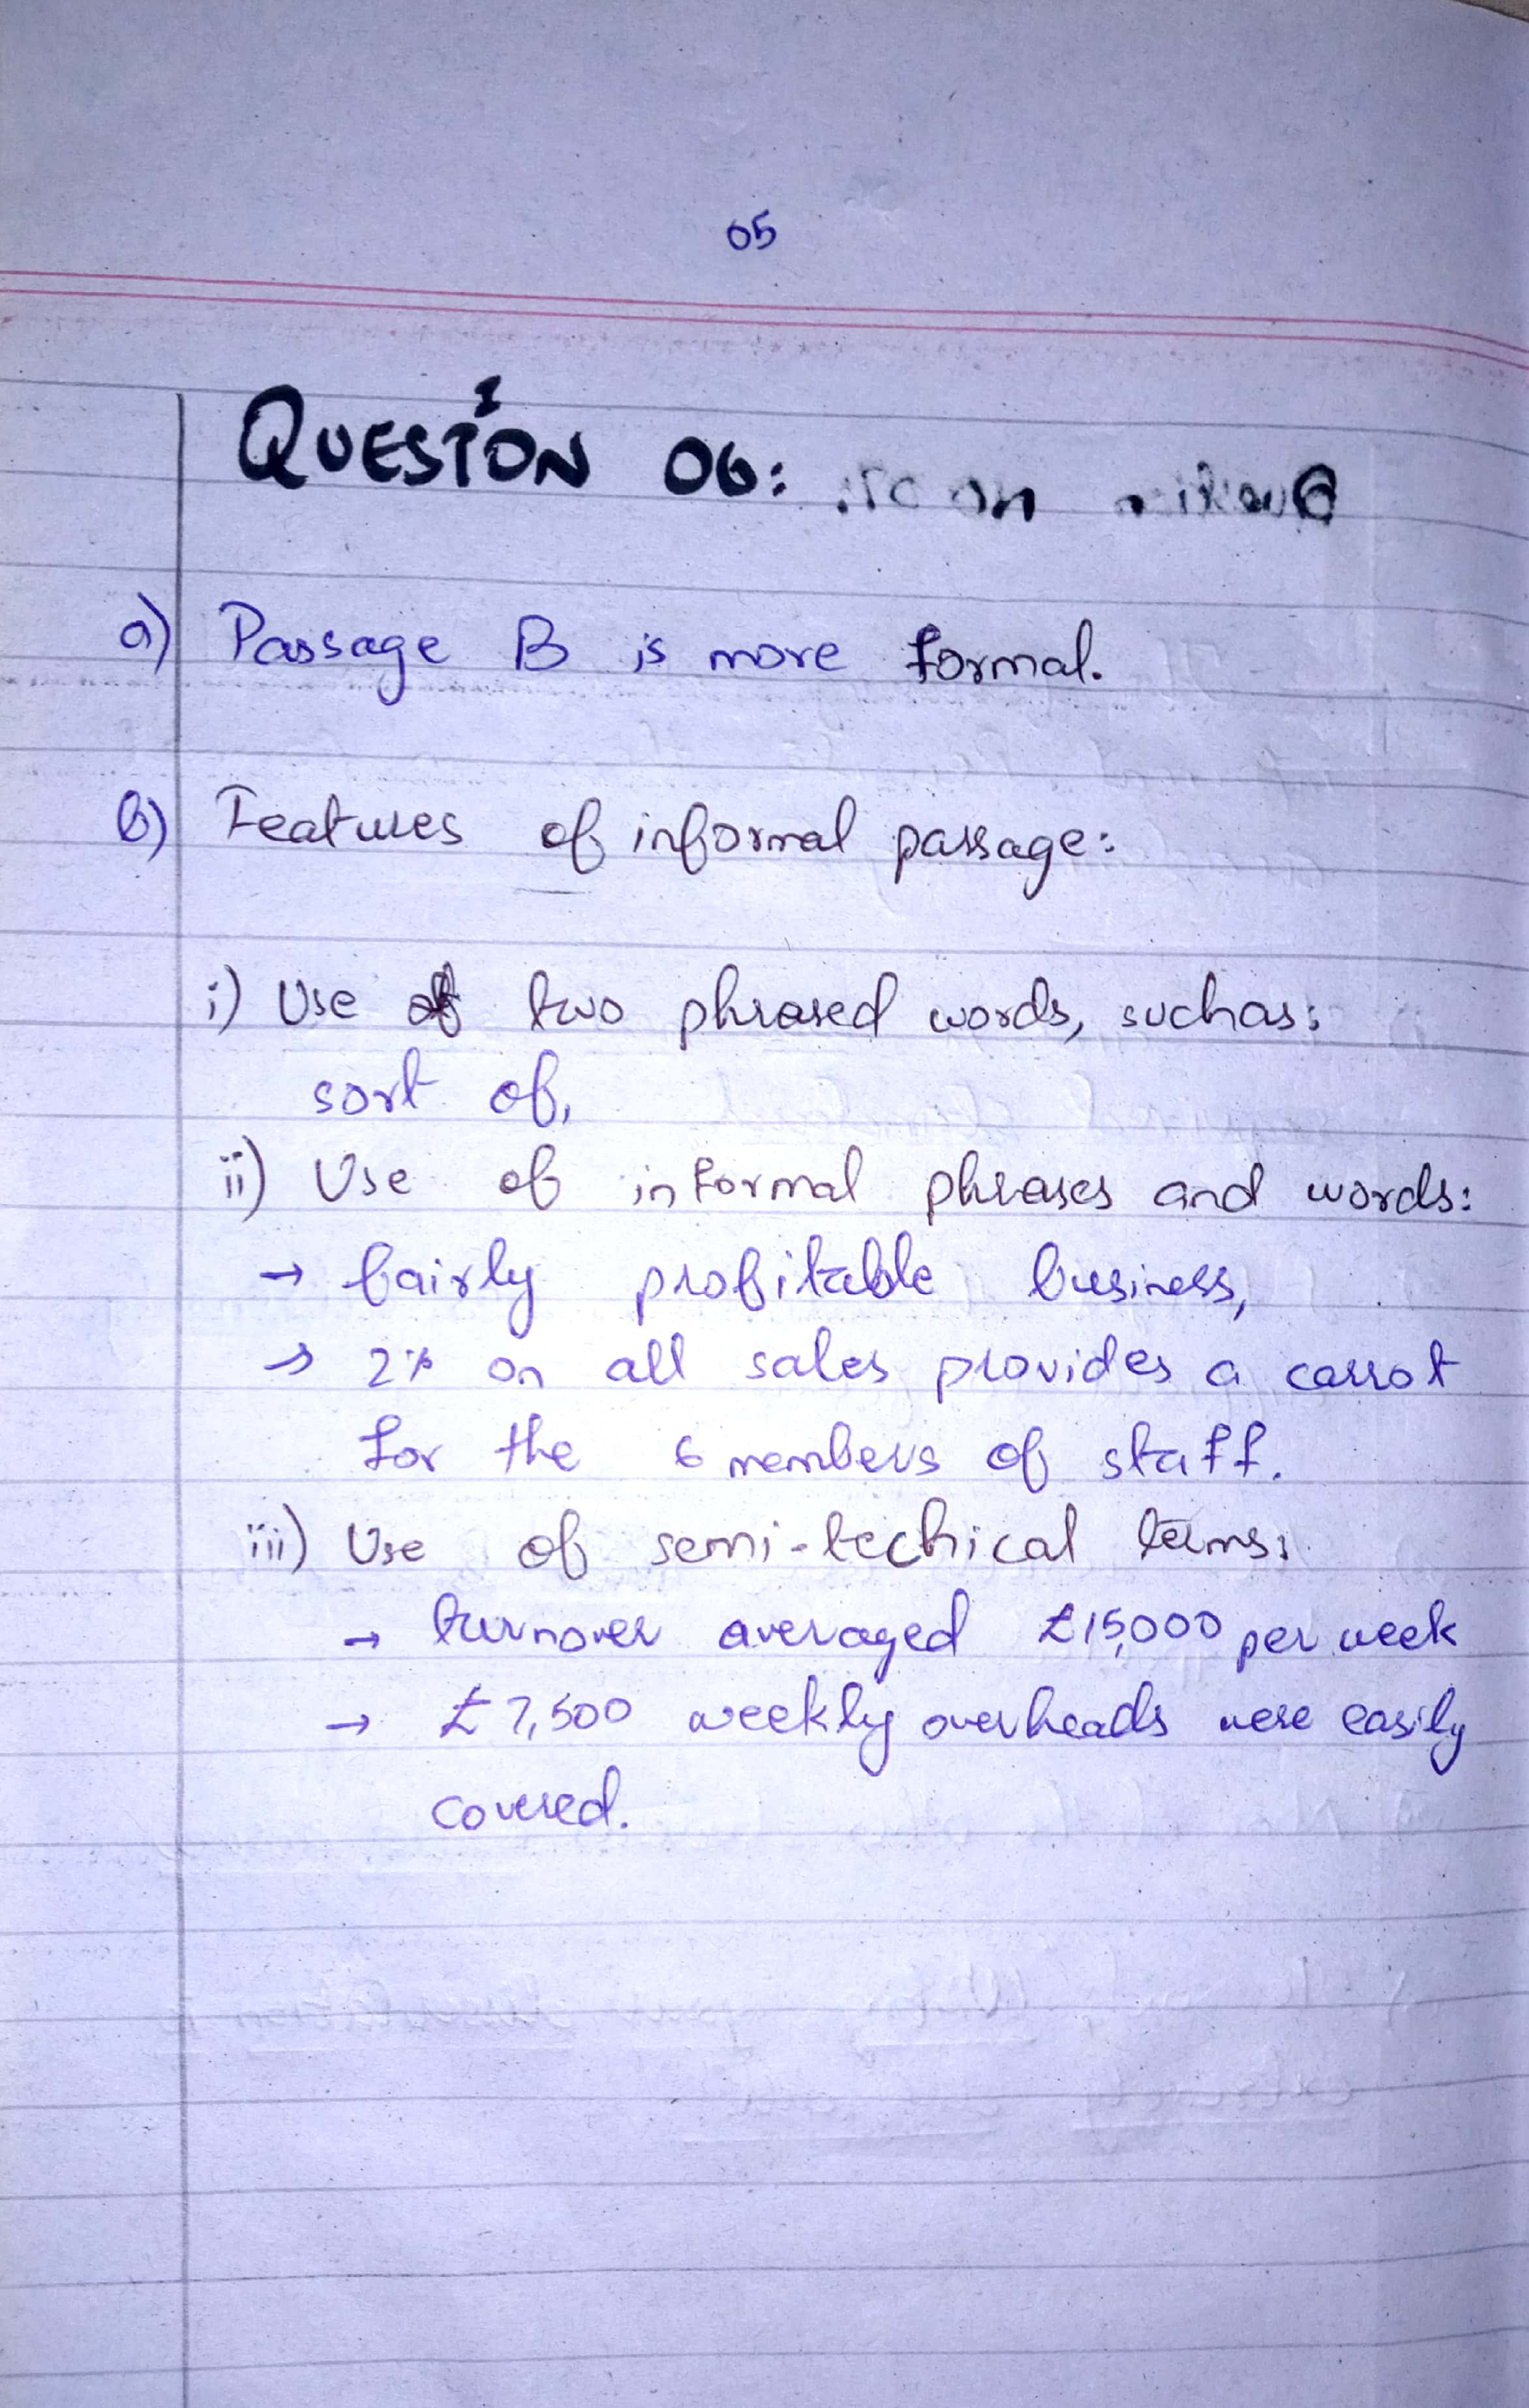 05
QUESTION 06:
a) Passage B is more formal.
b) Features of informal passage:
i) Use of two phrased words, such as:
sort of,
ii) Use of informal phrases and words:
→ fairly profitable business,
→ 2% on all sales provides a carrot
for the 6 members of staff.
iii) Use of semi-techical terms:
→ turnover averaged £15,000 per week
→ £7,500 weekly overheads were easily
covered.